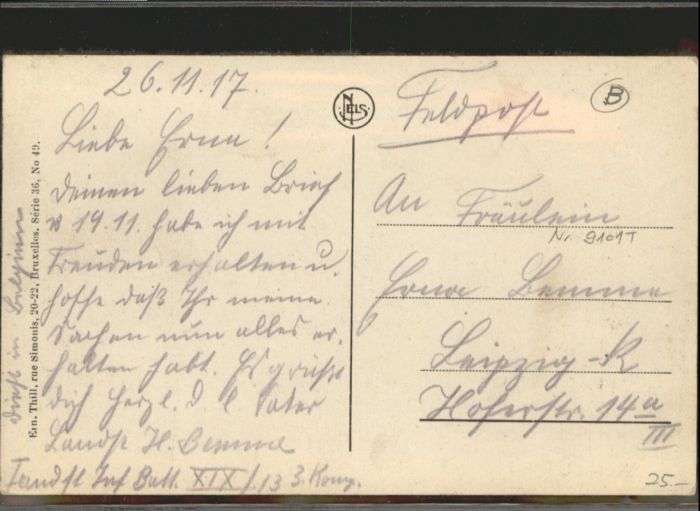 26.11.17.
Liebe Erna!
Deinen lieben Brief
v 19.11. habe ich mit
Freuden erhalten u.
hoffe daß Ihr meine
Sachen nun alles er-
halten habt. Es grüßt
Dich herzl. d. l. Vater
Landst H. Bemme
Landst Inf Batt. XIX/.13 3. Komp.
in Belgien
Ern. Thill, rue Simonis, 20-22, Bruxelles. Série 36, No 49.
NELS
Feldpost
B
An Fräulein
Nr. 9101T
Erna Bemme
Leipzig-R
Hoferstr. 14a
III
25.-